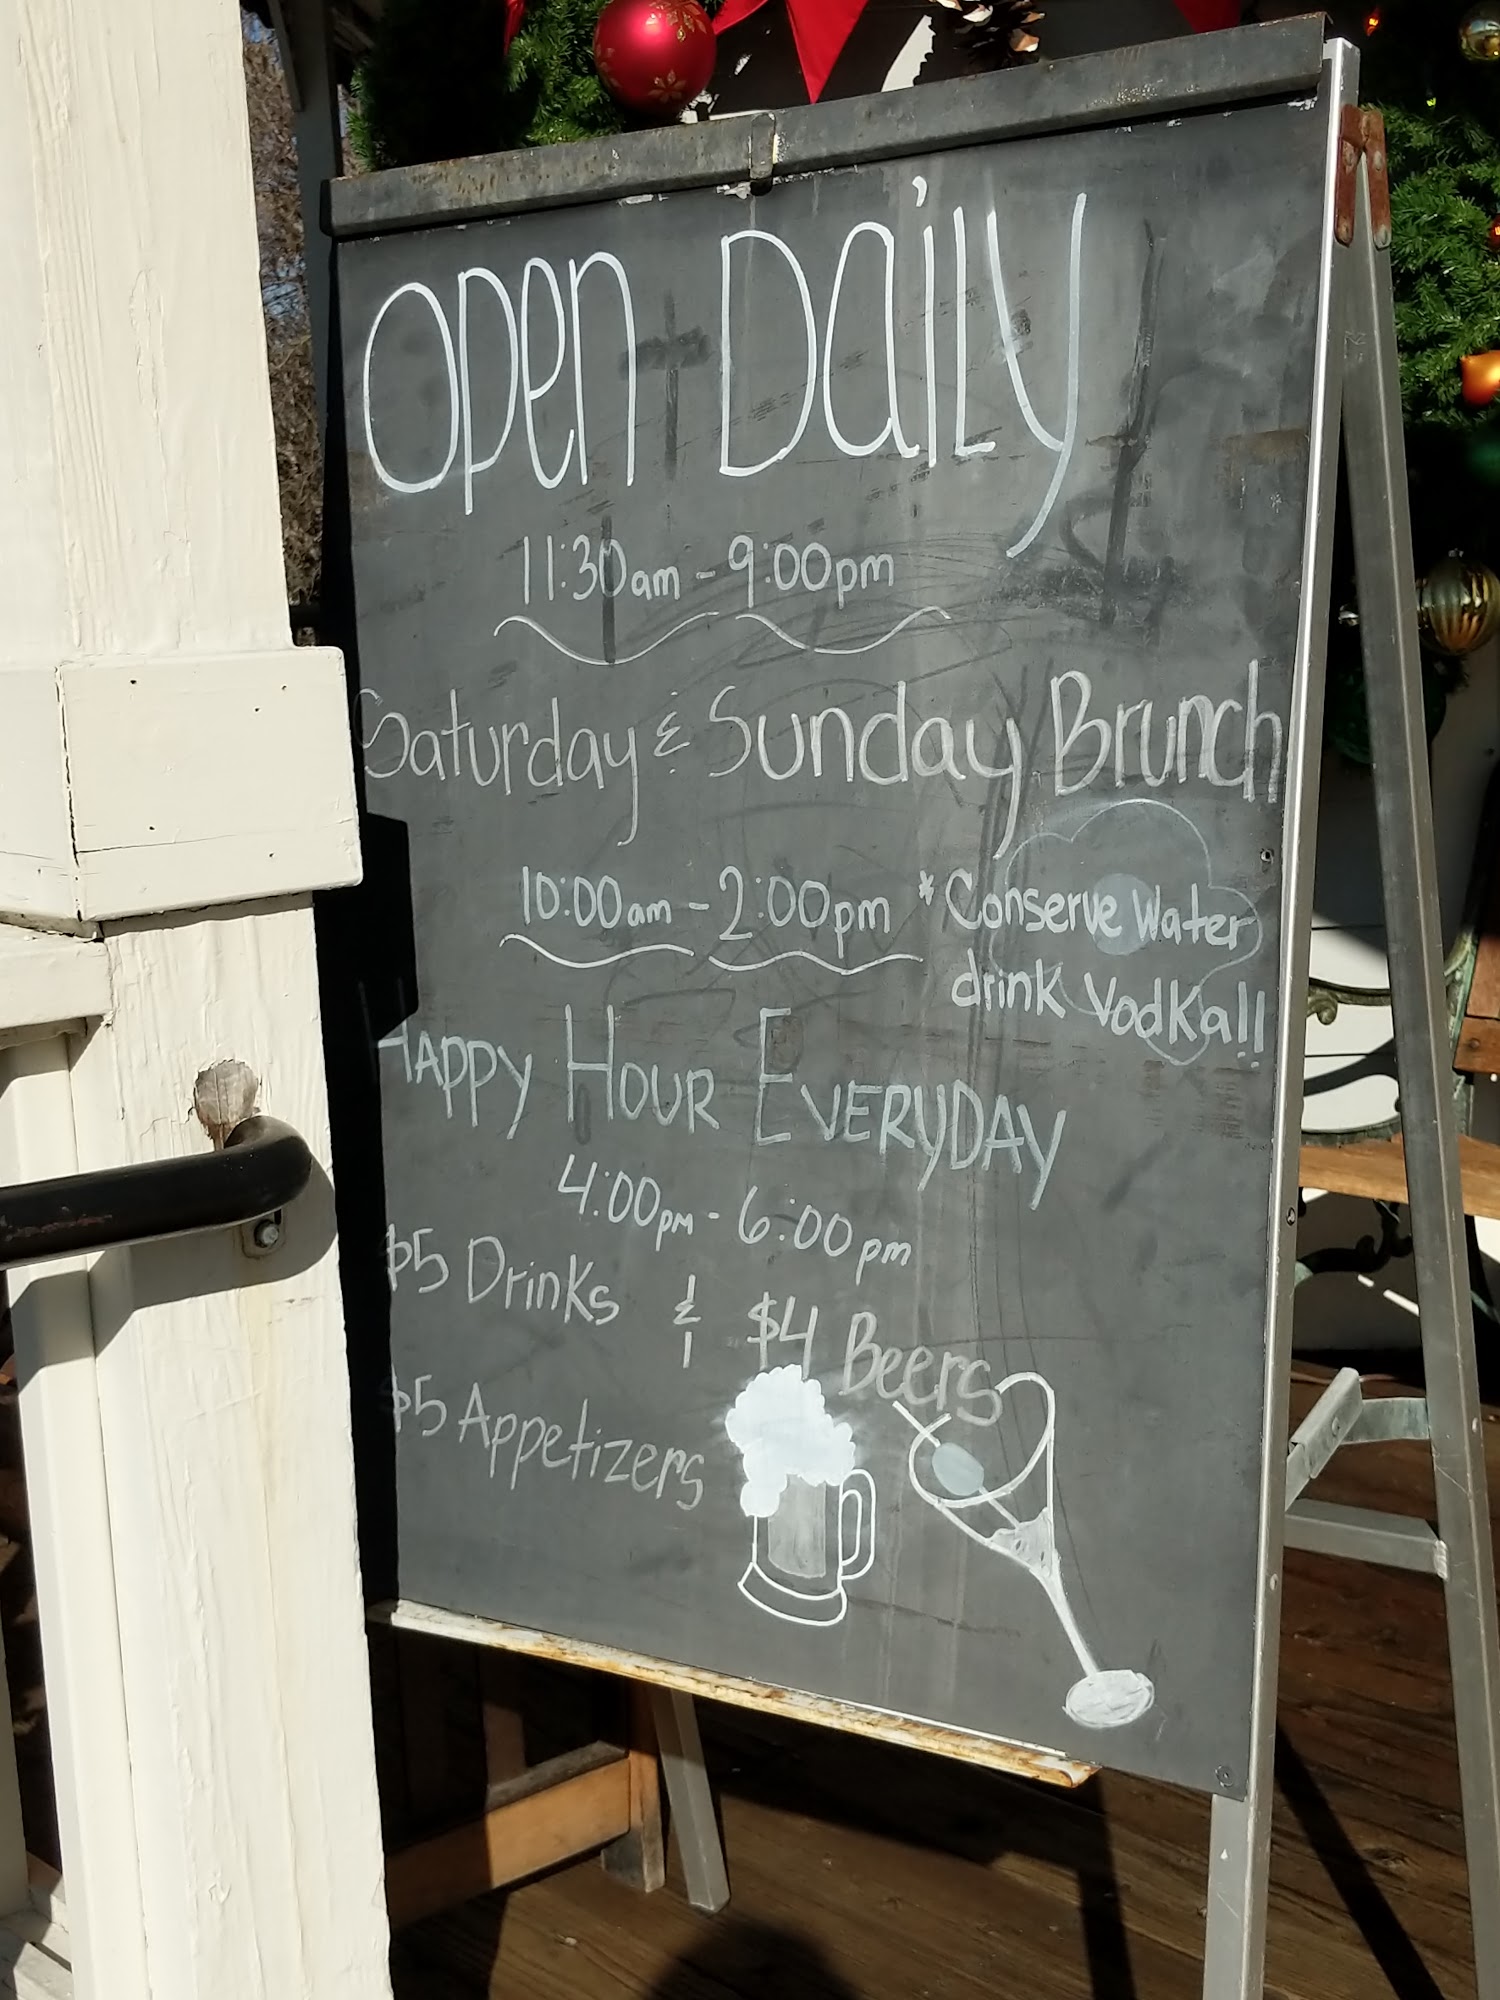 Open Daily
11:30am - 9:00pm
Saturday & Sunday Brunch
10:00am - 2:00pm
*Conserve Water
drink Vodka!!
Happy Hour Everyday
4:00pm - 6:00pm
$5 Drinks & $4 Beers
$5 Appetizers